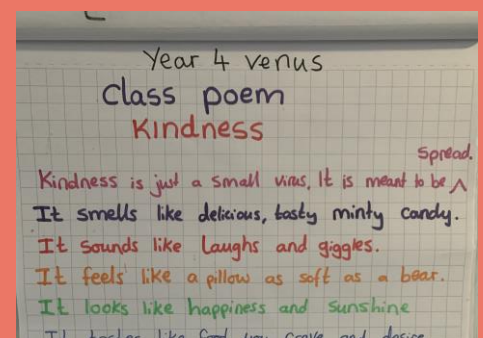 Year 4 venus
Class poem
Kindness
Kindness is just a small virus, It is meant to be ^ spread.
It smells like delicious, tasty minty candy.
It sounds like laughs and giggles.
It feels like a pillow as soft as a bear.
It looks like happiness and sunshine
It tastes like food you crave and desire